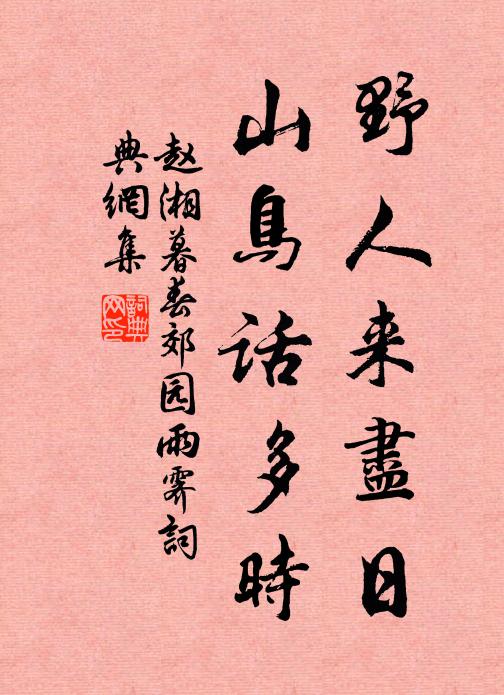 野人来盡日
山鳥话多時
赵湘暮春郊园雨霁詞
典網集
詞典網印